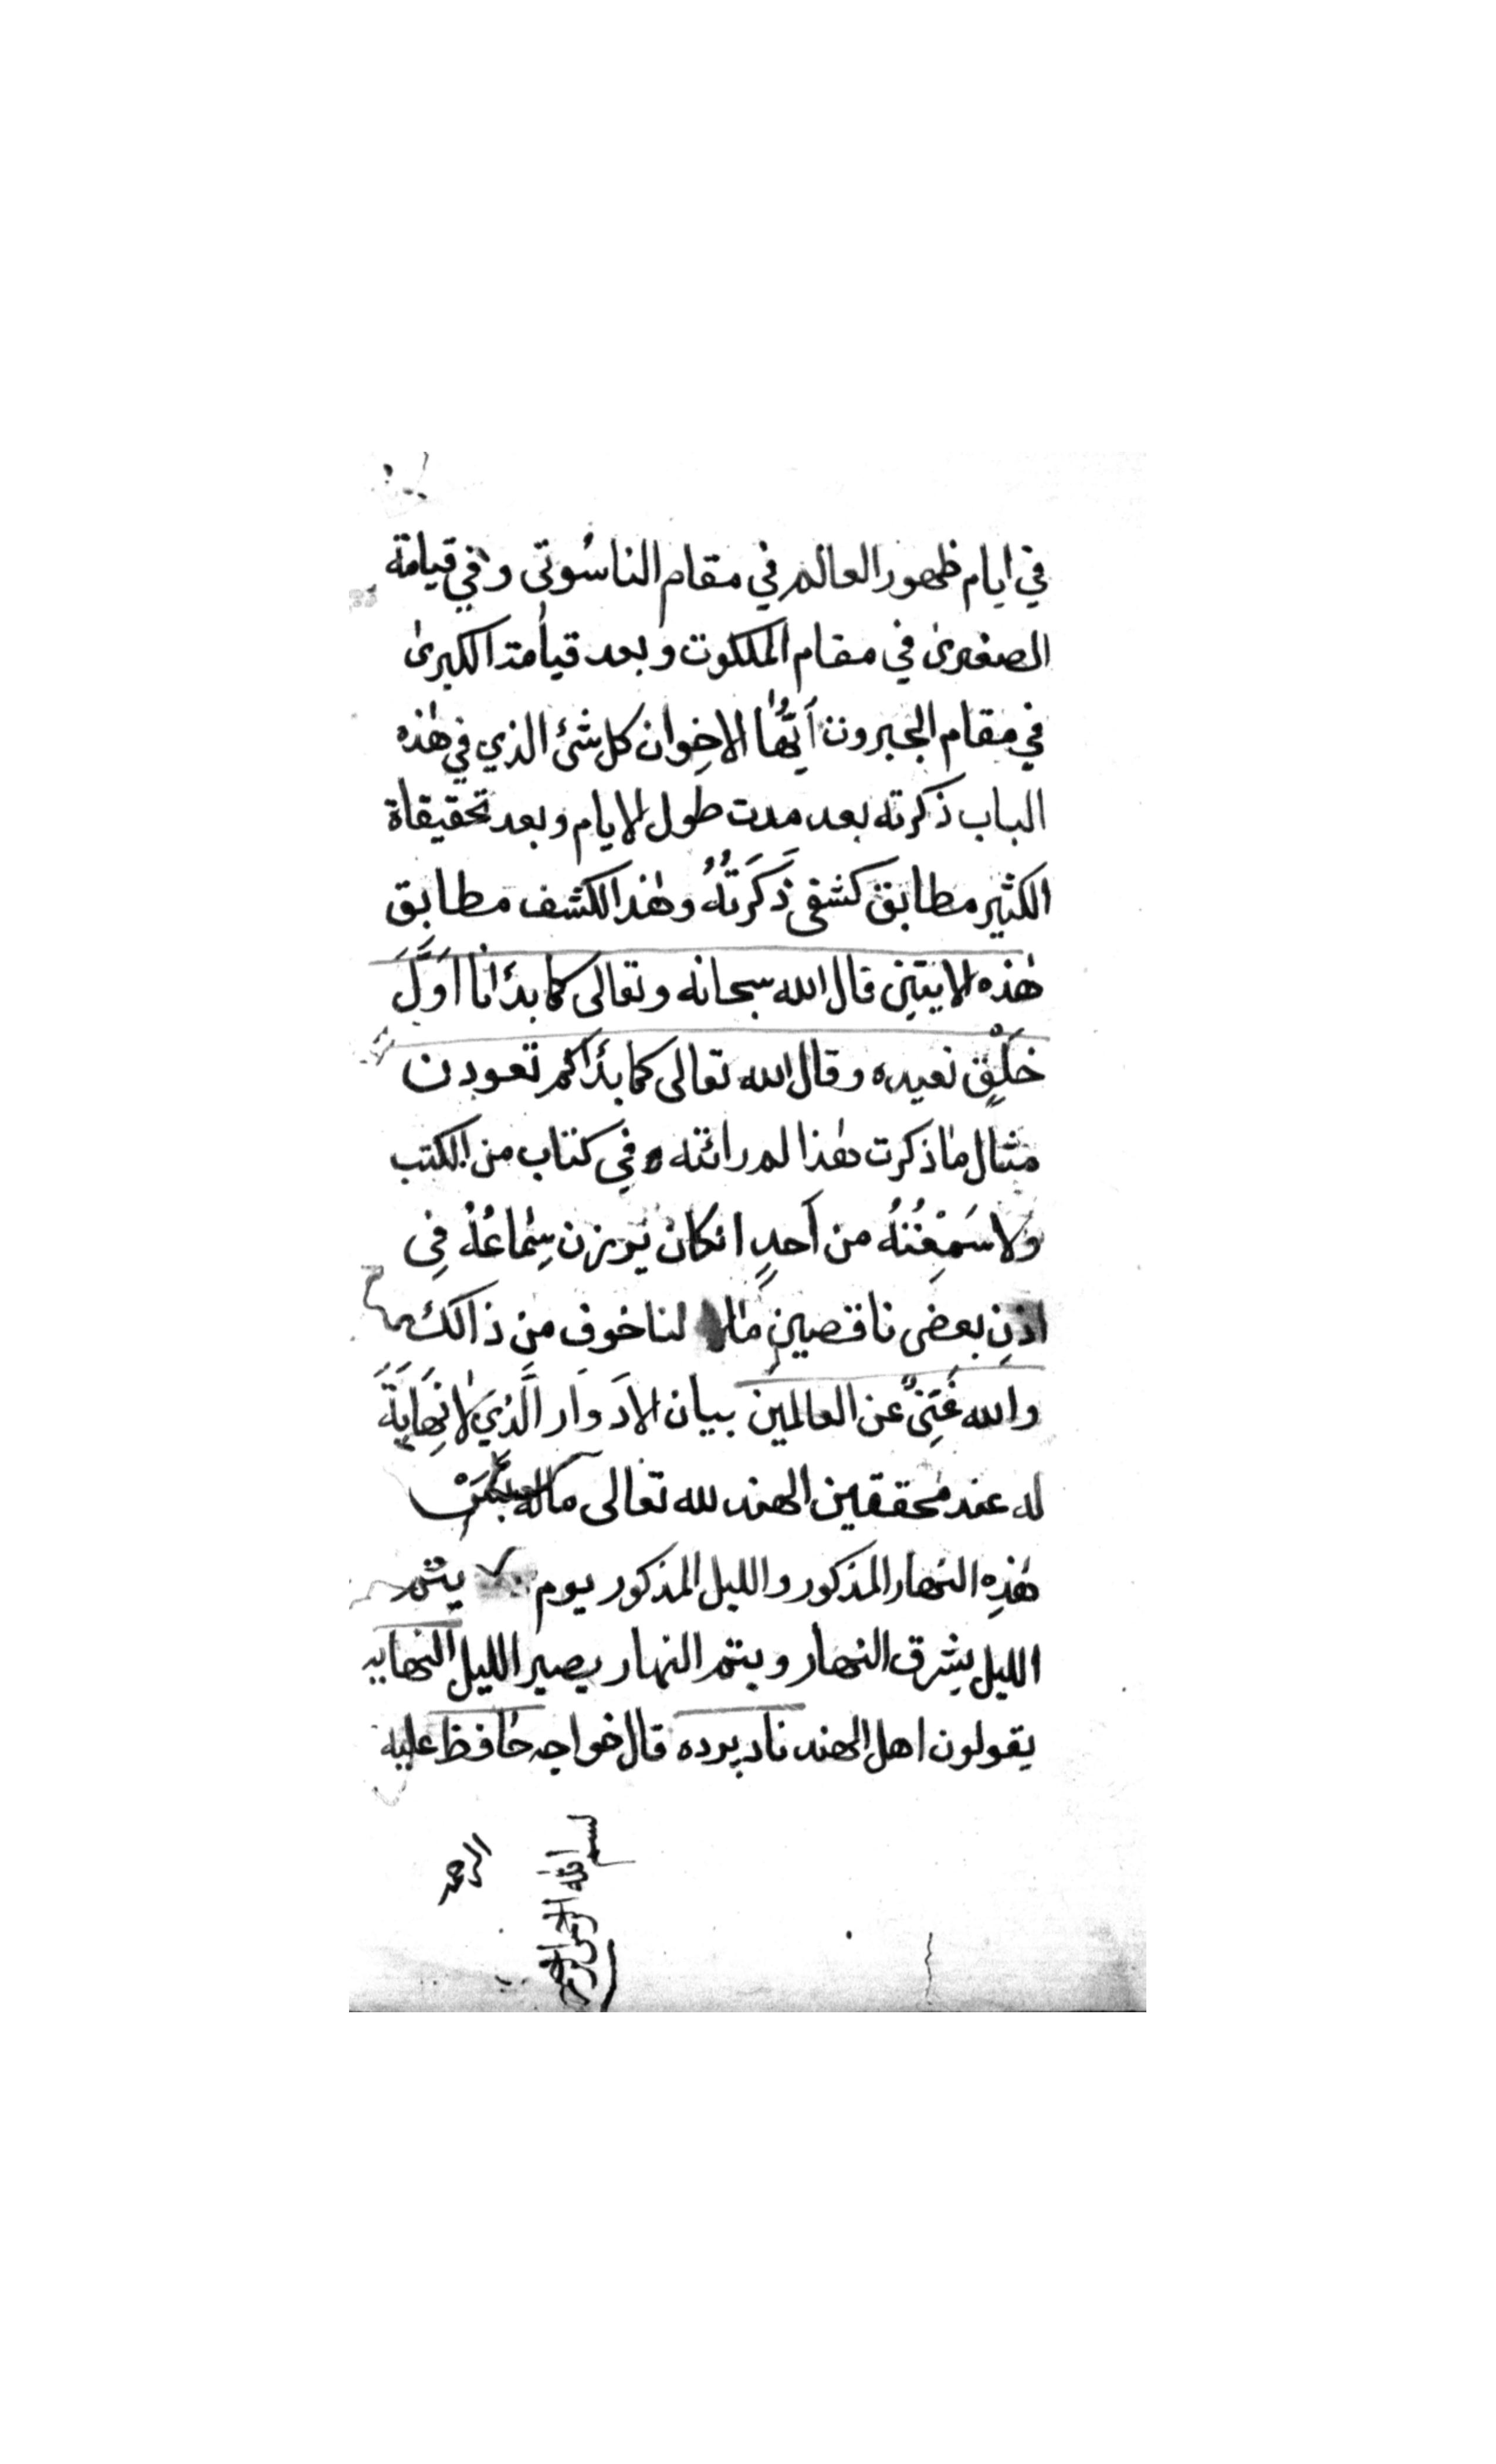 في ايام ظهور العالم في مقام الناسوتى وفي قيامة
الصغرىٰ في مقام الملكوت وبعد قيامة الكبرىٰ
في مقام الجبروت أيُّها الاخوان كل شئ الذي في هٰذه
الباب ذكرته بعد مدت طول الايام وبعد تحقيقاة
الكثير مطابق كشفى ذَكَرتُهُ وهٰذا الكشف مطابق
هٰذه الايتين قال الله سبحانه وتعالى كما بدأنا اَوَّلَ
خَلْقٍ نعيده وقال الله تعالى كما بدأكم تعودن
مثال ما ذكرت هٰذا لم رائته في كتاب من الكتب
ولا سَمِعْتُهُ من اَحدٍ انكان سِماعُهُ فِى
اذنِ بعضى ناقصين ما لنا خوف من ذالك
والله غَنِىٌّ عن العالمين بيان الادوار الَّذي لا نِهَايَةَ
له عند محققين الهند لله تعالى
هٰذِه النهار المذكور والليل المذكور يوم يتم
الليل يشرق النهار ويتم النهار يصير الليل النهايه
يقولون اهل الهند قال خواجه حافظ عليه
الرحمه
بسم الله الرحمن الرحيم